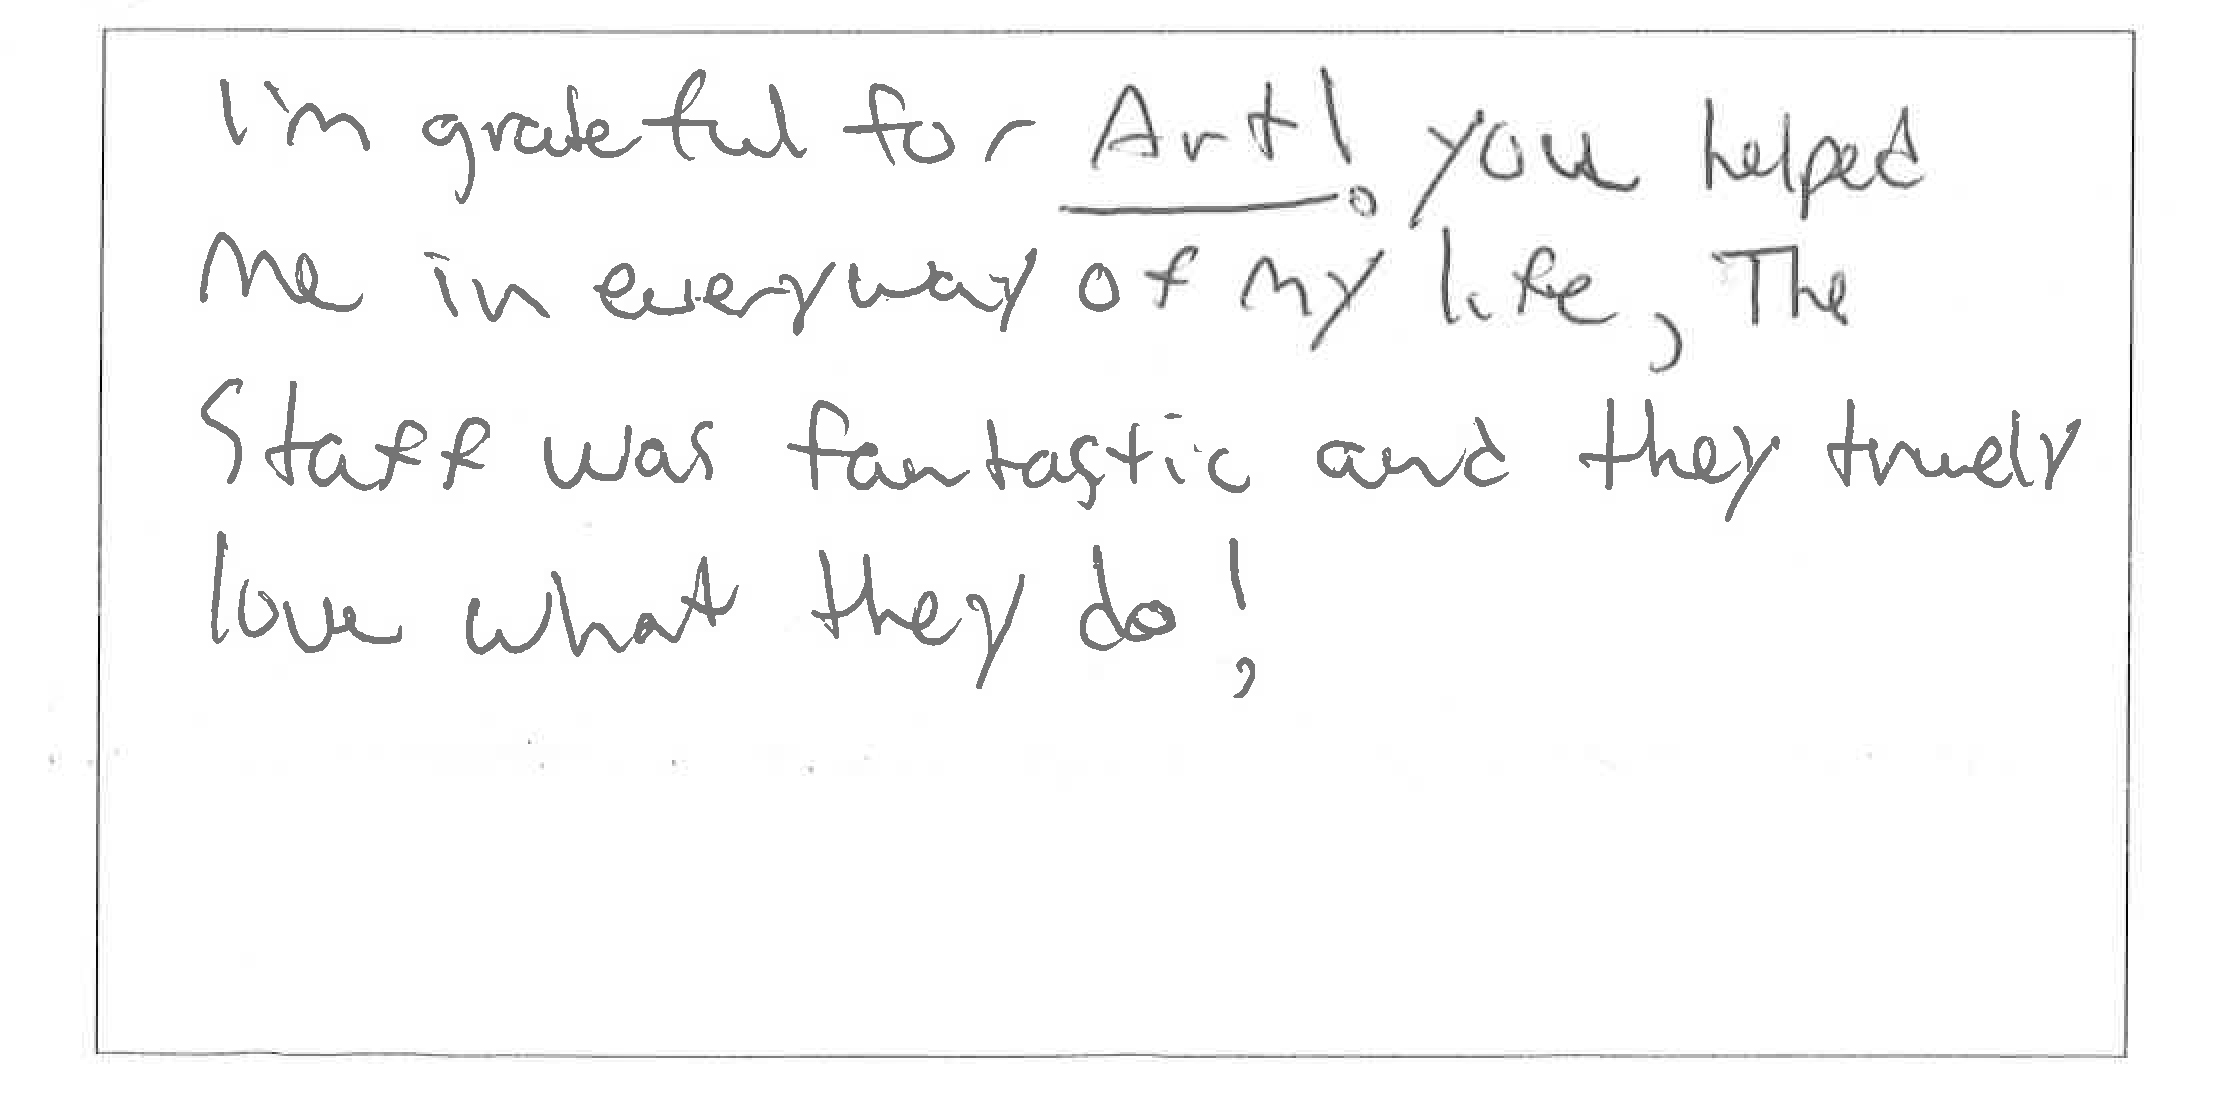 I'm grateful for Art! you helped
me in everyway of my life, The
Staff was fantastic and they truely
love what they do!